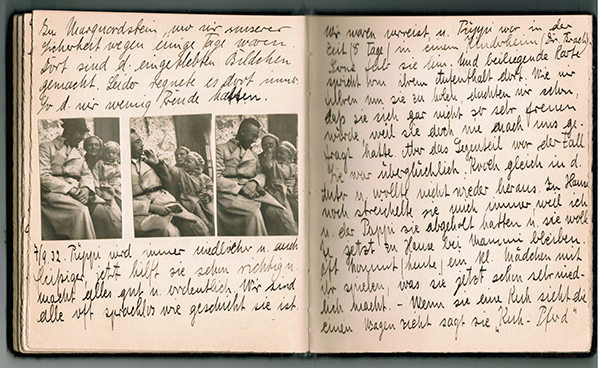 In Marquardstein, wo wir unserer
Sicherheit wegen einige Tage waren.
Dort sind d. eingeklebten Bildchen
gemacht. Leider regnete es dort immer
so d. wir wenig Freude hatten.
7/9 32. Püppi wird immer niedlicher u. auch
lustiger jetzt hilft sie schon richtig u.
macht alles gut u. ordentlich. Wir sind
alle oft sprachlos wie geschickt sie ist.
Wir waren verreist u. Püppi war in der
Zeit /8 Tage/ in einem Kinderheim
Gerne fuhr sie hin. Und beiliegende Karte
spricht von ihrem Aufenthalt dort. Wie wir
fuhren um sie zu holen, dachten wir schon,
daß sie sich gar nicht so sehr freuen
würde, weil sie doch nie nach uns ge-
fragt hatte. Aber das Gegenteil war der Fall
Sie war überglücklich. Kroch gleich in d.
Auto u. wollte nicht wieder heraus. Zu Hause
noch streichelte sie mich immer weil ich
u. der Pappi sie abgeholt hatten u. sie woll
te jetzt zu Hause bei Mammi bleiben.
Oft kommt /heute/ ein kl. Mädchen mit
ihr spielen, was sie jetzt schon sehr nied-
lich macht. – Wenn sie eine Kuh sieht die
einen Wagen zieht sagt sie „Kuh-Pferd"